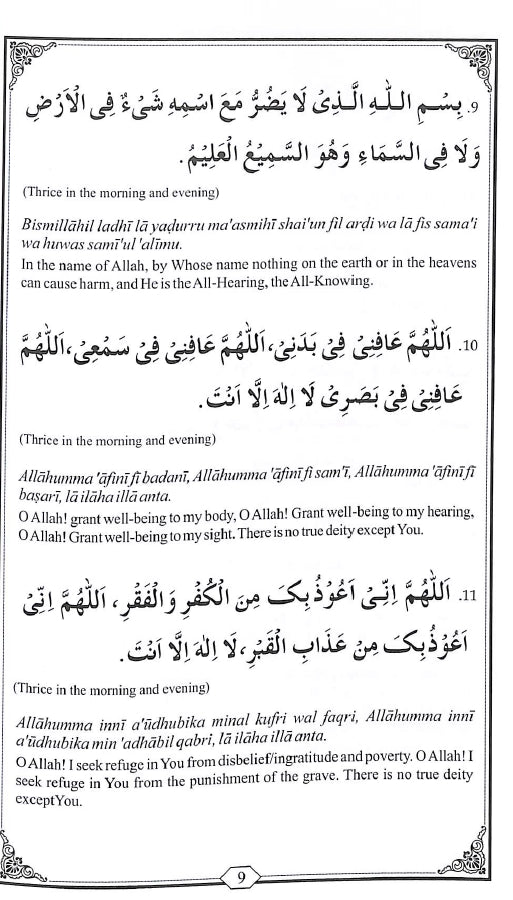 9. بِسْمِ اللّٰهِ الَّذِیْ لَا یَضُرُّ مَعَ اسْمِهٖ شَیْءٌ فِی الْاَرْضِ
وَلَا فِی السَّمَاءِ وَهُوَ السَّمِیْعُ الْعَلِیْمُ.
(Thrice in the morning and evening)
Bismillāhil ladhī lā yaḍurru ma'asmihī shai'un fil arḍi wa lā fis sama'i
wa huwas samī'ul 'alīmu.
In the name of Allah, by Whose name nothing on the earth or in the heavens
can cause harm, and He is the All-Hearing, the All-Knowing.
10. اَللّٰهُمَّ عَافِنِیْ فِیْ بَدَنِیْ، اَللّٰهُمَّ عَافِنِیْ فِیْ سَمْعِیْ، اَللّٰهُمَّ
عَافِنِیْ فِیْ بَصَرِیْ لَا اِلٰهَ اِلَّا اَنْتَ.
(Thrice in the morning and evening)
Allāhumma 'āfinī fī badanī, Allāhumma 'āfinī fī sam'ī, Allāhumma 'āfinī fī
baṣarī, lā ilāha illā anta.
O Allah! grant well-being to my body, O Allah! Grant well-being to my hearing,
O Allah! Grant well-being to my sight. There is no true deity except You.
11. اَللّٰهُمَّ اِنِّیْ اَعُوْذُبِکَ مِنَ الْکُفْرِ وَالْفَقْرِ، اَللّٰهُمَّ اِنِّیْ
اَعُوْذُبِکَ مِنْ عَذَابِ الْقَبْرِ، لَا اِلٰهَ اِلَّا اَنْتَ.
(Thrice in the morning and evening)
Allāhumma innī a'ūdhubika minal kufri wal faqri, Allāhumma innī
a'ūdhubika min 'adhābil qabri, lā ilāha illā anta.
O Allah! I seek refuge in You from disbelief/ingratitude and poverty. O Allah! I
seek refuge in You from the punishment of the grave. There is no true deity
except You.
9